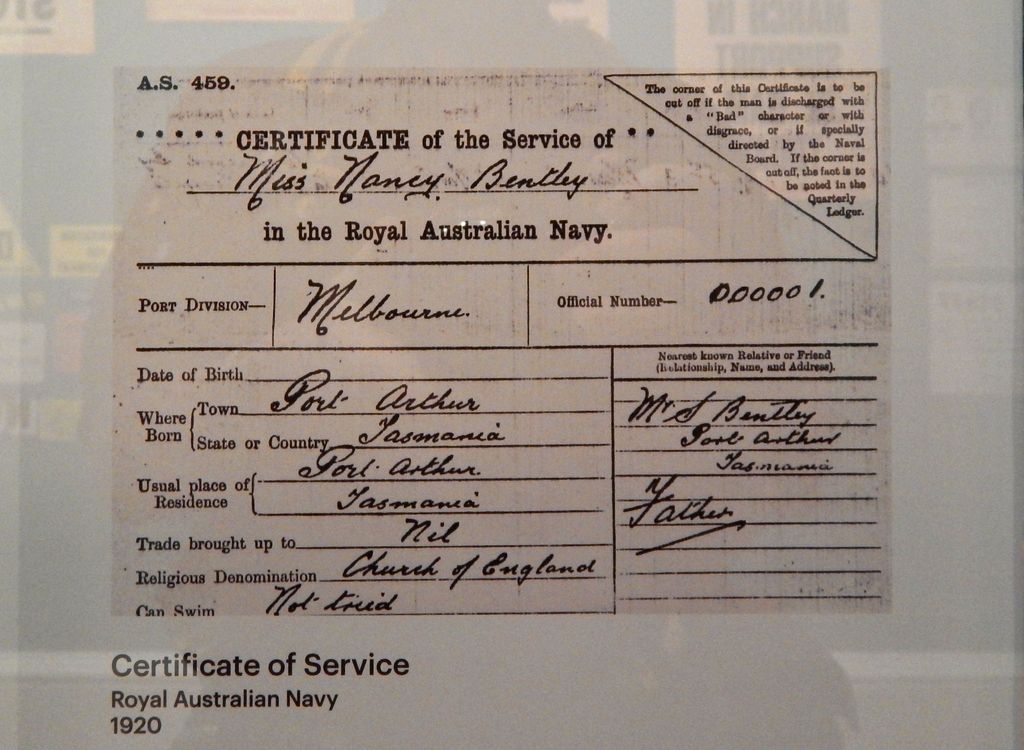 A.S. 459.
The corner of this Certificate is to be
cut off if the man is discharged with
a "Bad" character or with
disgrace, or if specially
directed by the Naval
Board. If the corner is
cut off, the fact is to
be noted in the
Quarterly
Ledger.
CERTIFICATE of the Service of
Miss Nancy Bentley
in the Royal Australian Navy.
PORT DIVISION—
Melbourne.
Official Number— 000001.
Date of Birth
Where Born
Town Port Arthur
State or Country Tasmania
Usual place of Residence
Port Arthur.
Tasmania
Trade brought up to Nil
Religious Denomination Church of England
Can Swim Not tried
Nearest known Relative or Friend
(Relationship, Name, and Address).
Mr S Bentley
Port Arthur
Tasmania
Father
Certificate of Service
Royal Australian Navy
1920